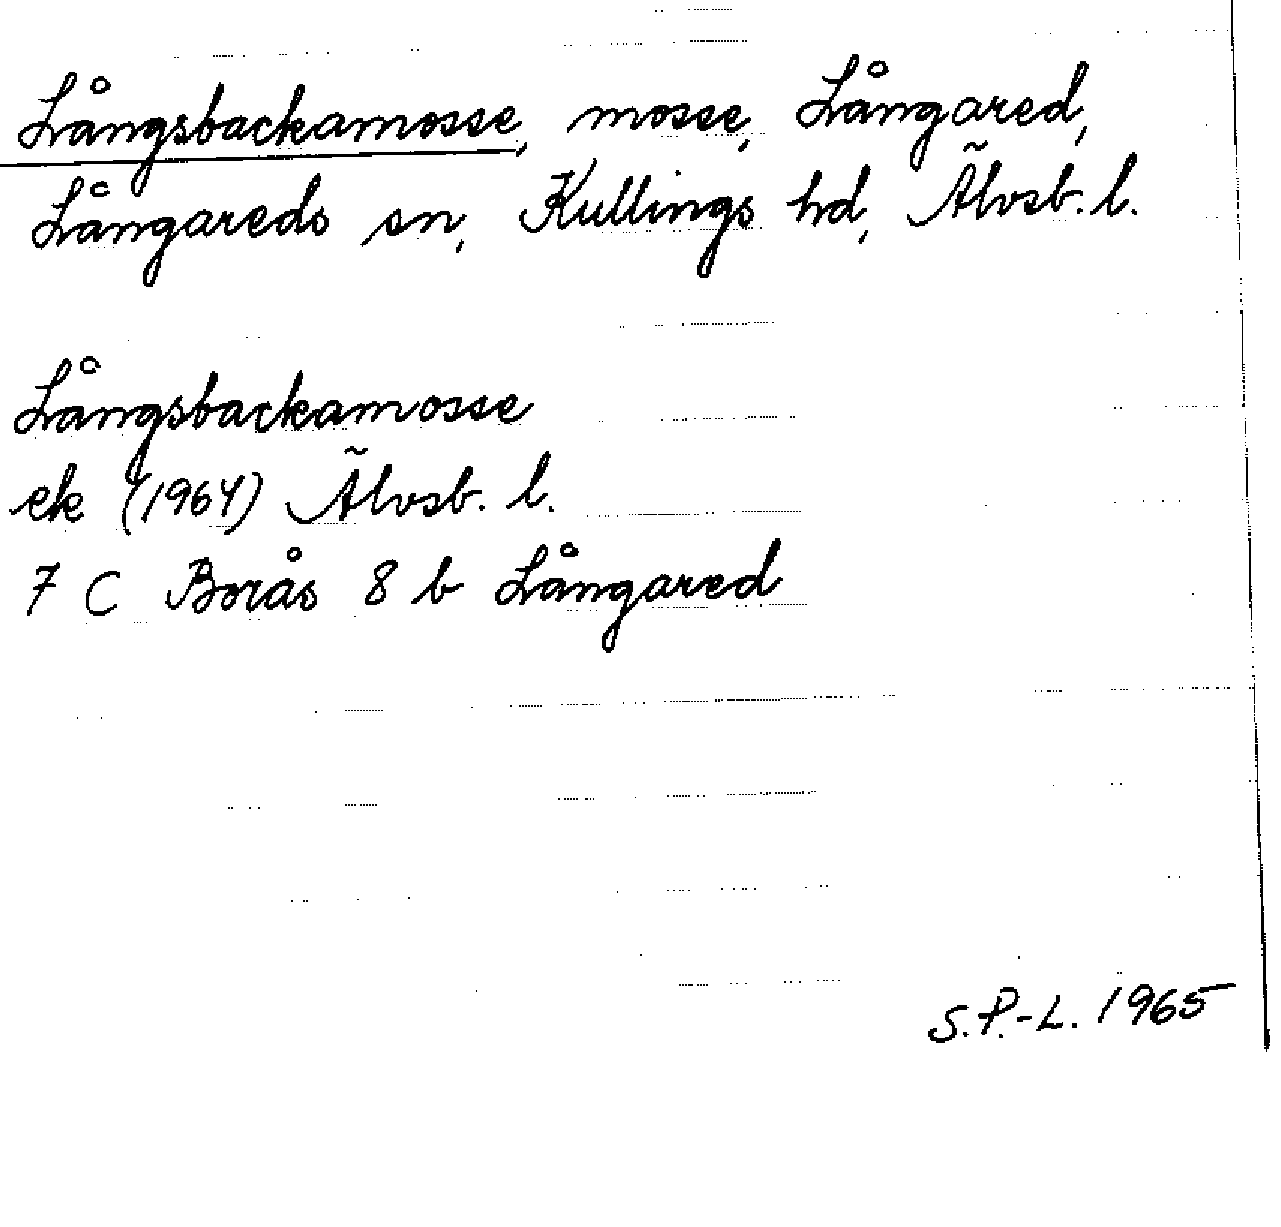 Långsbackamosse, mosse, Långared,
Långareds sn, Kullings hd, Älvsb. l.
Långsbackamosse
ek (1964) Älvsb. l.
7 C Borås 8 b Långared
S.P.-L. 1965